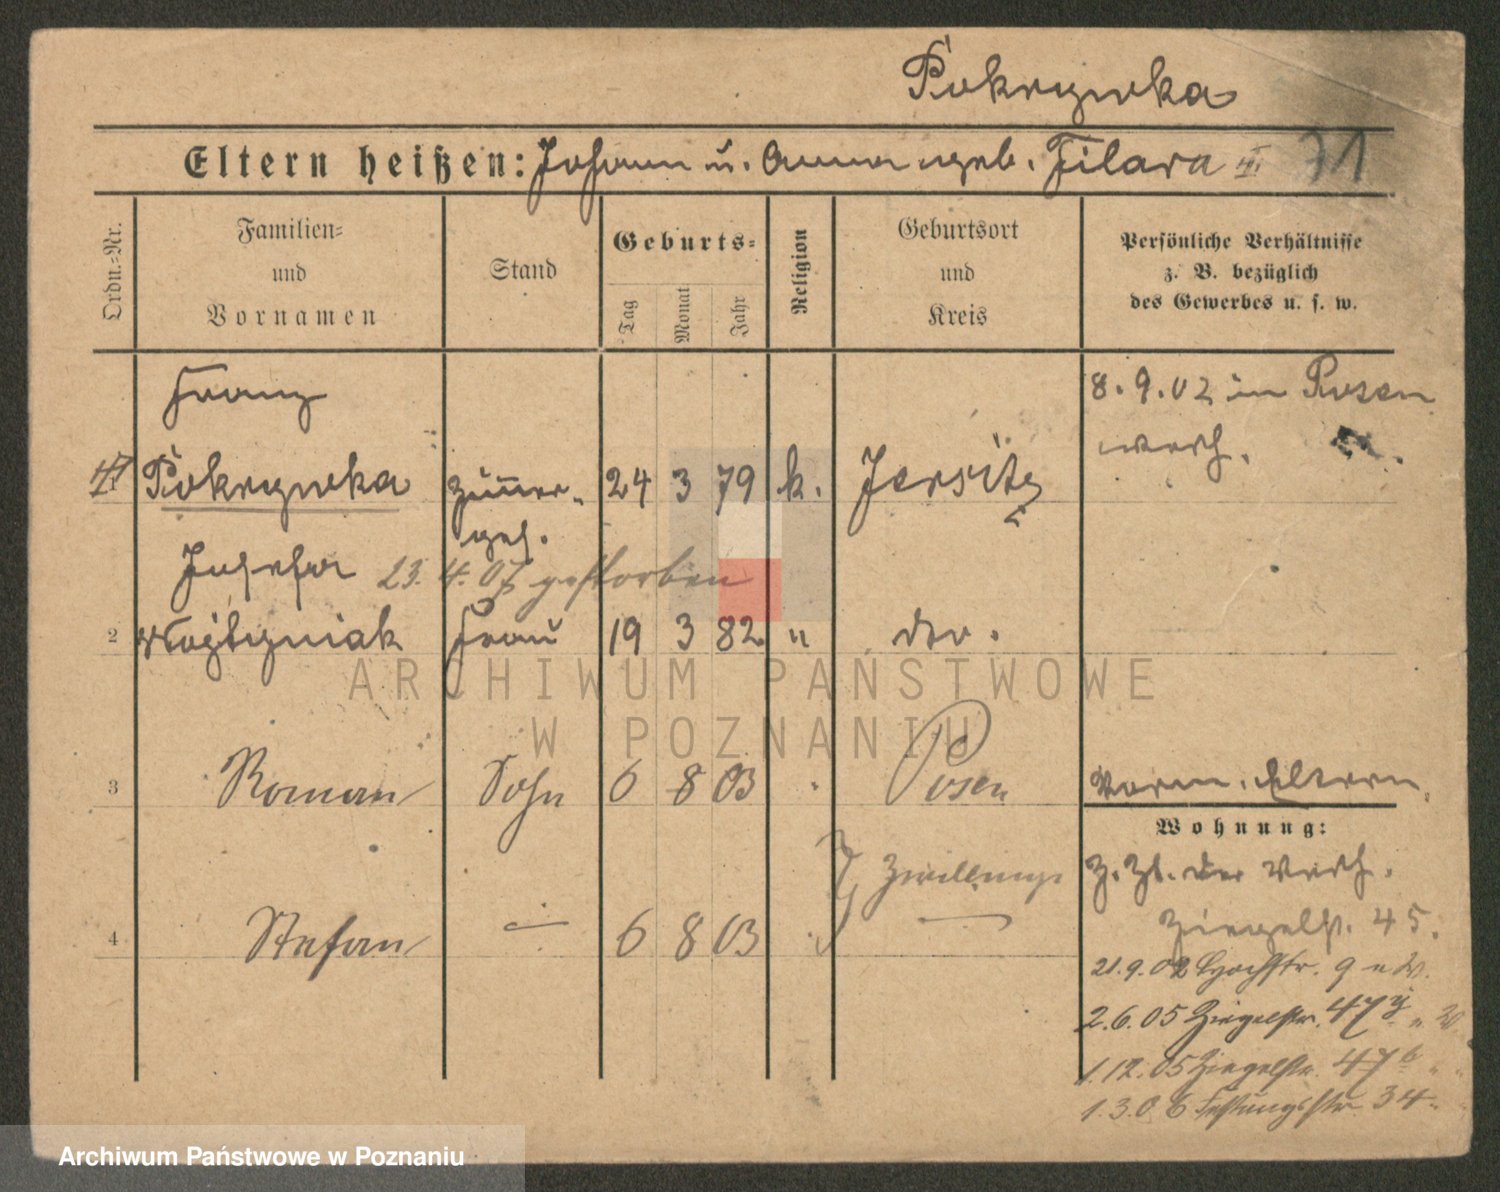 Pokrzywka
Eltern heißen: Johann u. Anna geb. Filara 71
Ordn.-Nr.
Familien-
und
Vornamen
Stand
Geburts-
Tag
Monat
Jahr
Religion
Geburtsort
und
Kreis
Persönliche Verhältnisse
z. B. bezüglich
des Gewerbes u. s. w.
Franz
Pokrzywka Zimmer- 24 3 79 k. Jersitz
ges.
8.9.02 in Posen
verh.
Josefa 23.4.07 gestorben
2 Wojtyniak Frau 19 3 82. " dto.
3 Roman Sohn 6 8 03 Posen
Vorm. Eltern
Wohnung:
Zwillinge
4 Stefan 6 8 03
z. Zt. der Verh.
Ziegelst. 45.
21.9.02 Hochstr. 9
2.6.05 Ziegelstr. 47
1.12.05 Ziegelstr. 47b
1.3.06 Festungsstr 34
ARCHIWUM PAŃSTWOWE
W POZNANIU
Archiwum Państwowe w Poznaniu